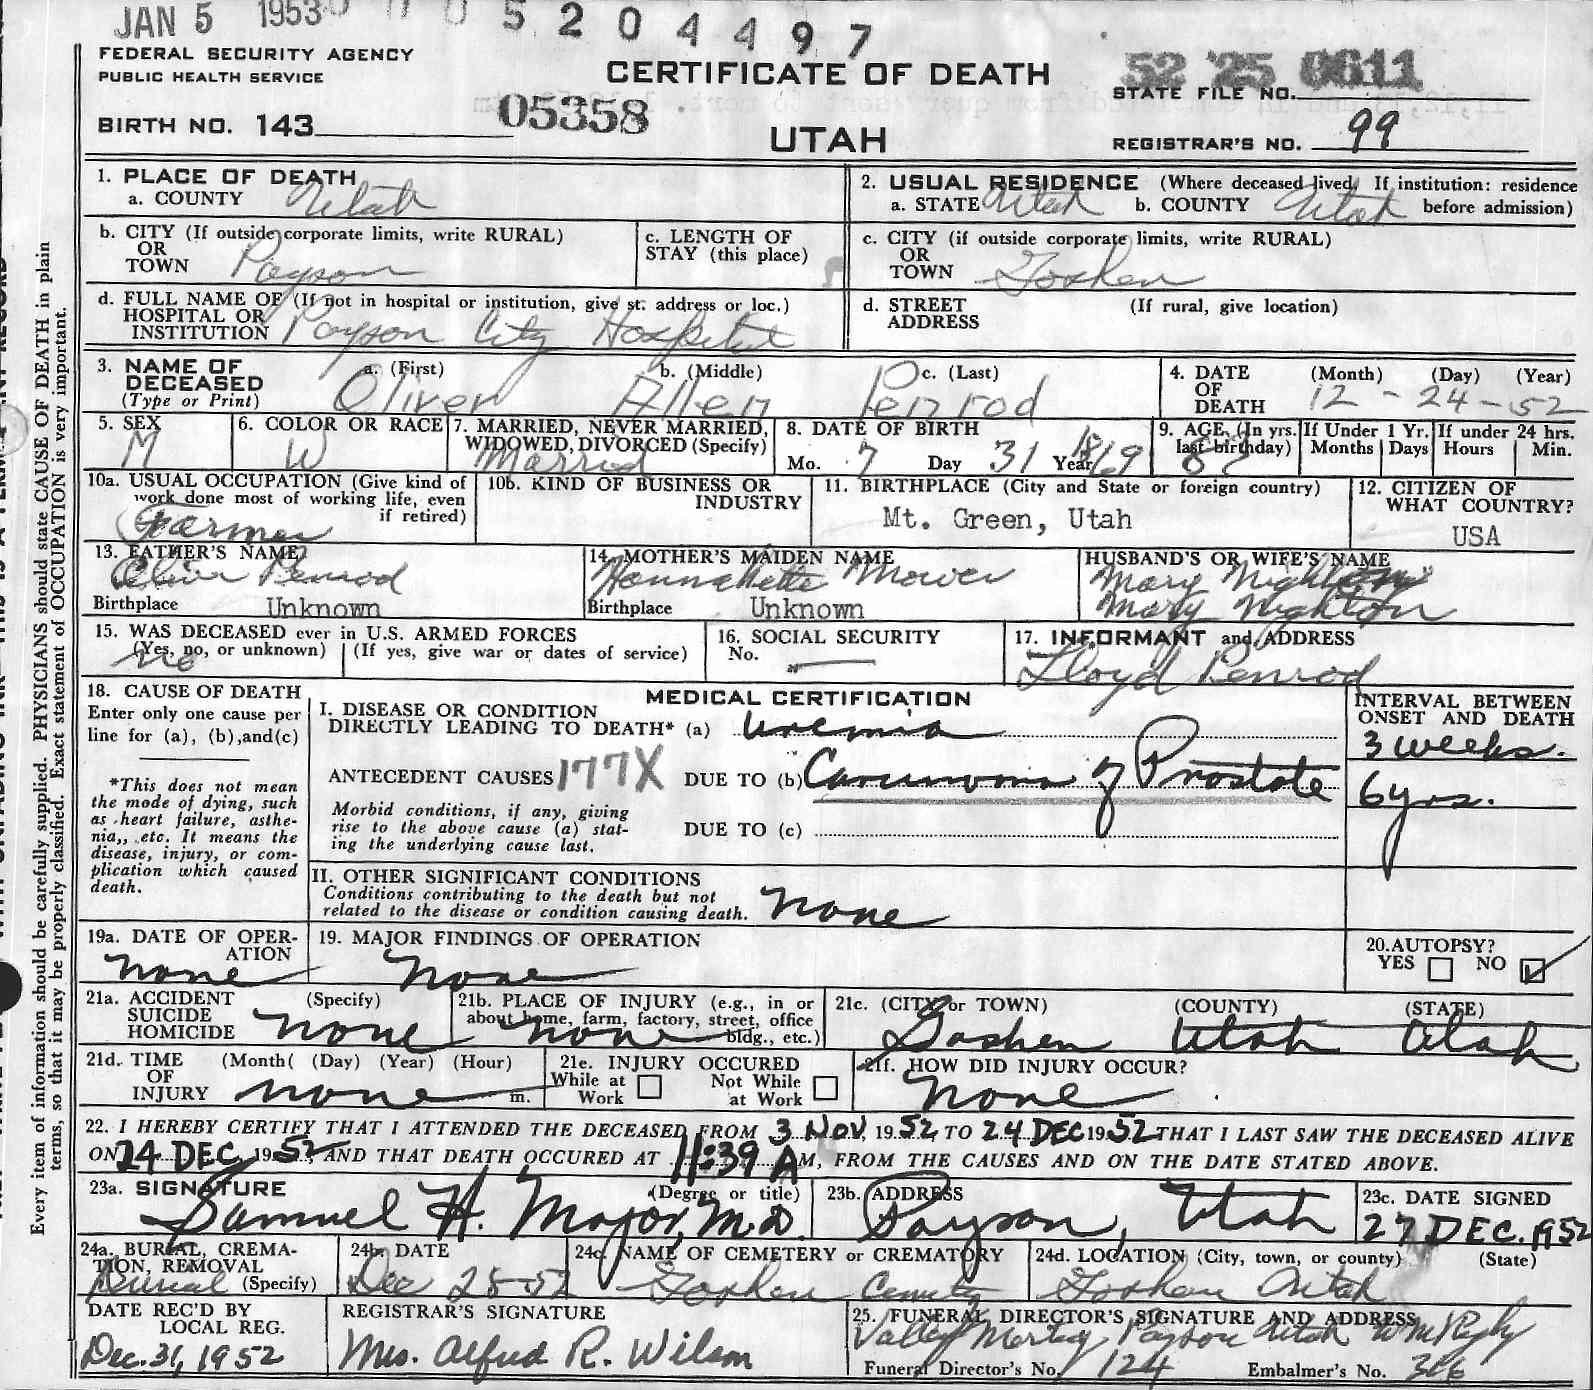 JAN 5 1953
5 2 0 4 4 9 7
FEDERAL SECURITY AGENCY
PUBLIC HEALTH SERVICE
CERTIFICATE OF DEATH
52 25 0611
STATE FILE NO.
BIRTH NO. 143
05358
UTAH
REGISTRAR'S NO. 99
1. PLACE OF DEATH
a. COUNTY Utah
2. USUAL RESIDENCE (Where deceased lived. If institution: residence before admission)
a. STATE Utah b. COUNTY Utah
b. CITY (If outside corporate limits, write RURAL)
OR
TOWN Payson
c. LENGTH OF
STAY (this place)
c. CITY (if outside corporate limits, write RURAL)
OR
TOWN Goshen
d. FULL NAME OF (If not in hospital or institution, give st. address or loc.)
HOSPITAL OR
INSTITUTION Payson City Hospital
d. STREET (If rural, give location)
ADDRESS
3. NAME OF
DECEASED
(Type or Print)
a. (First) b. (Middle) c. (Last)
Oliver Allen Penrod
4. DATE (Month) (Day) (Year)
OF
DEATH 12 - 24 - 52
5. SEX
M
6. COLOR OR RACE
W
7. MARRIED, NEVER MARRIED,
WIDOWED, DIVORCED (Specify)
Married
8. DATE OF BIRTH
Mo. 7 Day 31 Year 1869
9. AGE (In yrs.
last birthday) 83
If Under 1 Yr.
Months Days
If under 24 hrs.
Hours Min.
10a. USUAL OCCUPATION (Give kind of
work done most of working life, even
if retired)
Farmer
10b. KIND OF BUSINESS OR
INDUSTRY
11. BIRTHPLACE (City and State or foreign country)
Mt. Green, Utah
12. CITIZEN OF
WHAT COUNTRY?
USA
13. FATHER'S NAME
Oliver Penrod
Birthplace Unknown
14. MOTHER'S MAIDEN NAME
Hannahette Mower
Birthplace Unknown
HUSBAND'S OR WIFE'S NAME
Mary Nighton
Mary Nighton
15. WAS DECEASED ever in U.S. ARMED FORCES
(Yes, no, or unknown) (If yes, give war or dates of service)
no
16. SOCIAL SECURITY
No.
17. INFORMANT and ADDRESS
Lloyd Penrod
18. CAUSE OF DEATH
Enter only one cause per
line for (a), (b), and (c)
*This does not mean
the mode of dying, such
as heart failure, asthe-
nia,, etc. It means the
disease, injury, or com-
plication which caused
death.
MEDICAL CERTIFICATION
I. DISEASE OR CONDITION
DIRECTLY LEADING TO DEATH* (a) uremia
ANTECEDENT CAUSES 177X DUE TO (b) Carcinoma of Prostate
Morbid conditions, if any, giving
rise to the above cause (a) stat-
ing the underlying cause last.
DUE TO (c)
INTERVAL BETWEEN
ONSET AND DEATH
3 weeks.
6 yrs.
II. OTHER SIGNIFICANT CONDITIONS
Conditions contributing to the death but not
related to the disease or condition causing death. none
19a. DATE OF OPER-
ATION
none
19. MAJOR FINDINGS OF OPERATION
none
20. AUTOPSY?
YES NO
21a. ACCIDENT (Specify)
SUICIDE
HOMICIDE none
21b. PLACE OF INJURY (e.g., in or
about home, farm, factory, street, office
bldg., etc.)
none
21c. (CITY or TOWN) (COUNTY) (STATE)
Goshen Utah Utah
21d. TIME (Month( (Day) (Year) (Hour)
OF
INJURY none m.
21e. INJURY OCCURED
While at Work Not While at Work
21f. HOW DID INJURY OCCUR?
none
22. I HEREBY CERTIFY THAT I ATTENDED THE DECEASED FROM 3 NOV, 1952, TO 24 DEC 1952 THAT I LAST SAW THE DECEASED ALIVE
ON 24 DEC, 1952, AND THAT DEATH OCCURED AT 11:39 AM, FROM THE CAUSES AND ON THE DATE STATED ABOVE.
23a. SIGNATURE (Degree or title)
Samuel H. Major, M.D.
23b. ADDRESS
Payson, Utah
23c. DATE SIGNED
27 DEC. 1952
24a. BURIAL, CREMA-
TION, REMOVAL
Burial (Specify)
24b. DATE
Dec 28-52
24c. NAME OF CEMETERY or CREMATORY
Goshen Cemetery
24d. LOCATION (City, town, or county) (State)
Goshen Utah
DATE REC'D BY
LOCAL REG.
Dec. 31, 1952
REGISTRAR'S SIGNATURE
Mrs. Alfred R. Wilson
25. FUNERAL DIRECTOR'S SIGNATURE AND ADDRESS
Valley Mortuary Payson Utah
Funeral Director's No. 124 Embalmer's No. 366
Every item of information should be carefully supplied. PHYSICIANS should state CAUSE OF DEATH in plain
terms, so that it may be properly classified. Exact statement of OCCUPATION is very important.